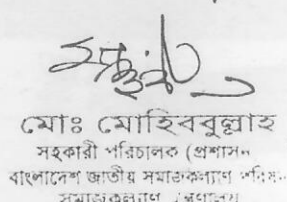 মোঃ মোহিববুল্লাহ
সহকারী পরিচালক (প্রশাসন
বাংলাদেশ জাতীয় সমাজকল্যাণ পরিষদ
সমাজকল্যাণ